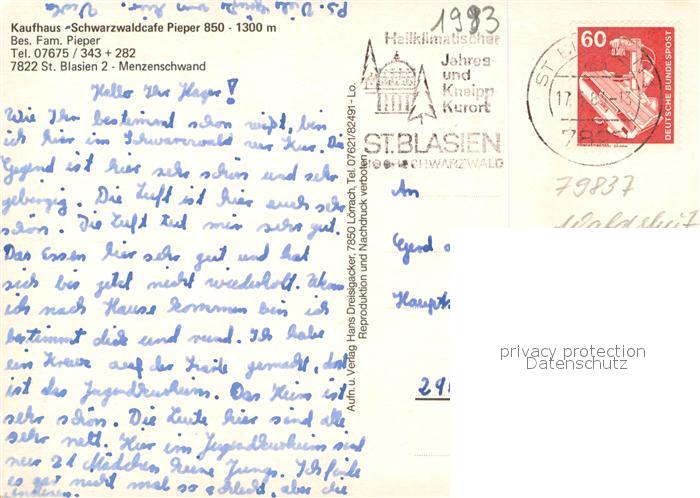 Kaufhaus - Schwarzwaldcafe Pieper 850 - 1300 m
Bes. Fam. Pieper
Tel. 07675 / 343 + 282
7822 St. Blasien 2 - Menzenschwand
Hallo Ihr Hager!
Wie Ihr bestimmt schon wißt, bin
ich hier im Schwarzwald zur Kur. Die
Gegend ist hier sehr schön und sehr
gebirgig. Die Luft ist hier auch sehr
schön. Die Luft tut mir sehr gut.
Das Essen hier sehr gut und hat
sich bis jetzt nicht wiederholt. Wenn
ich nach Hause kommen bin ich
bestimmt dick und rund. Ich habe
ein Kreuz auf der Karte gemacht, dort
ist das Jugendkurheim. Das Heim ist
sehr schön. Die Leute hier sind alle
sehr nett. Hier im Jugendkurheim sind
nur 21 Mädchen keine Jungs. Ich finde
es gar nicht mal so schlecht, aber die
anderen
PS.
Aufn. u. Verlag Hans Dreisigacker, 7850 Lörrach, Tel. 07621/82491 - Lo.
Reproduktion und Nachdruck verboten
1983
Heilklimatischer
Jahres-
und
Kneipp
Kurort
ST. BLASIEN
SCHWARZWALD
ST
17
60
DEUTSCHE BUNDESPOST
79837
Waldshut
An
Gerd
Haupt
29
privacy protection
Datenschutz